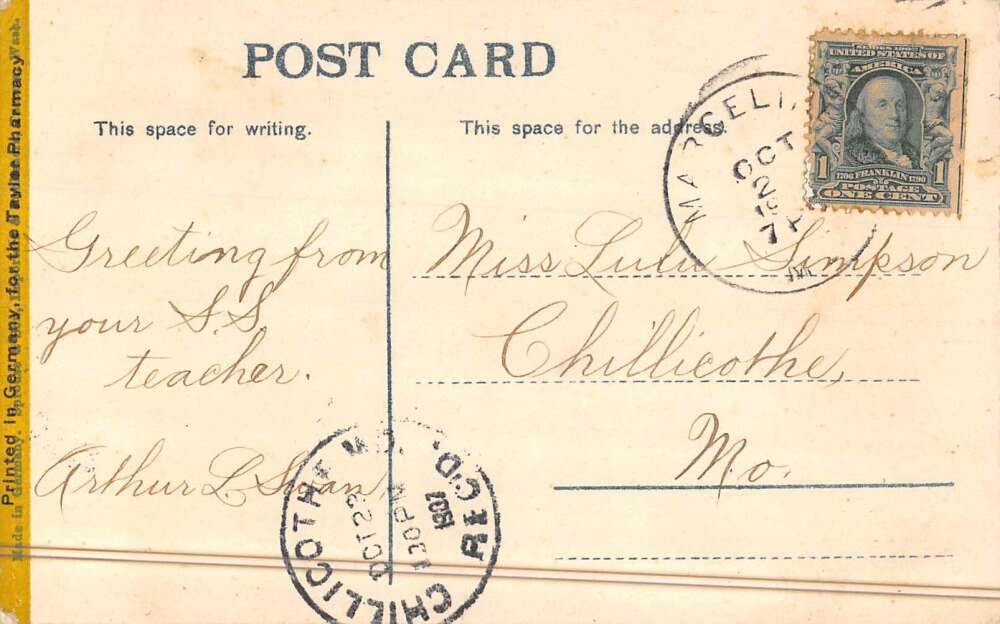 POST CARD
This space for writing.
This space for the address.
Greeting from
your S.S.
teacher.
Arthur L Swan
Miss Lulu Simpson
Chillicothe,
Mo.
SERIES 1902
UNITED STATES OF
AMERICA
1706 FRANKLIN 1790
POSTAGE
1 ONE CENT 1
OCT
2
7 P
CHILLICOTHE MO.
REC'D.
OCT 22
130PM
1907
Printed in Germany, for the Taylor Pharmacy
Made in Germany.
Wash.